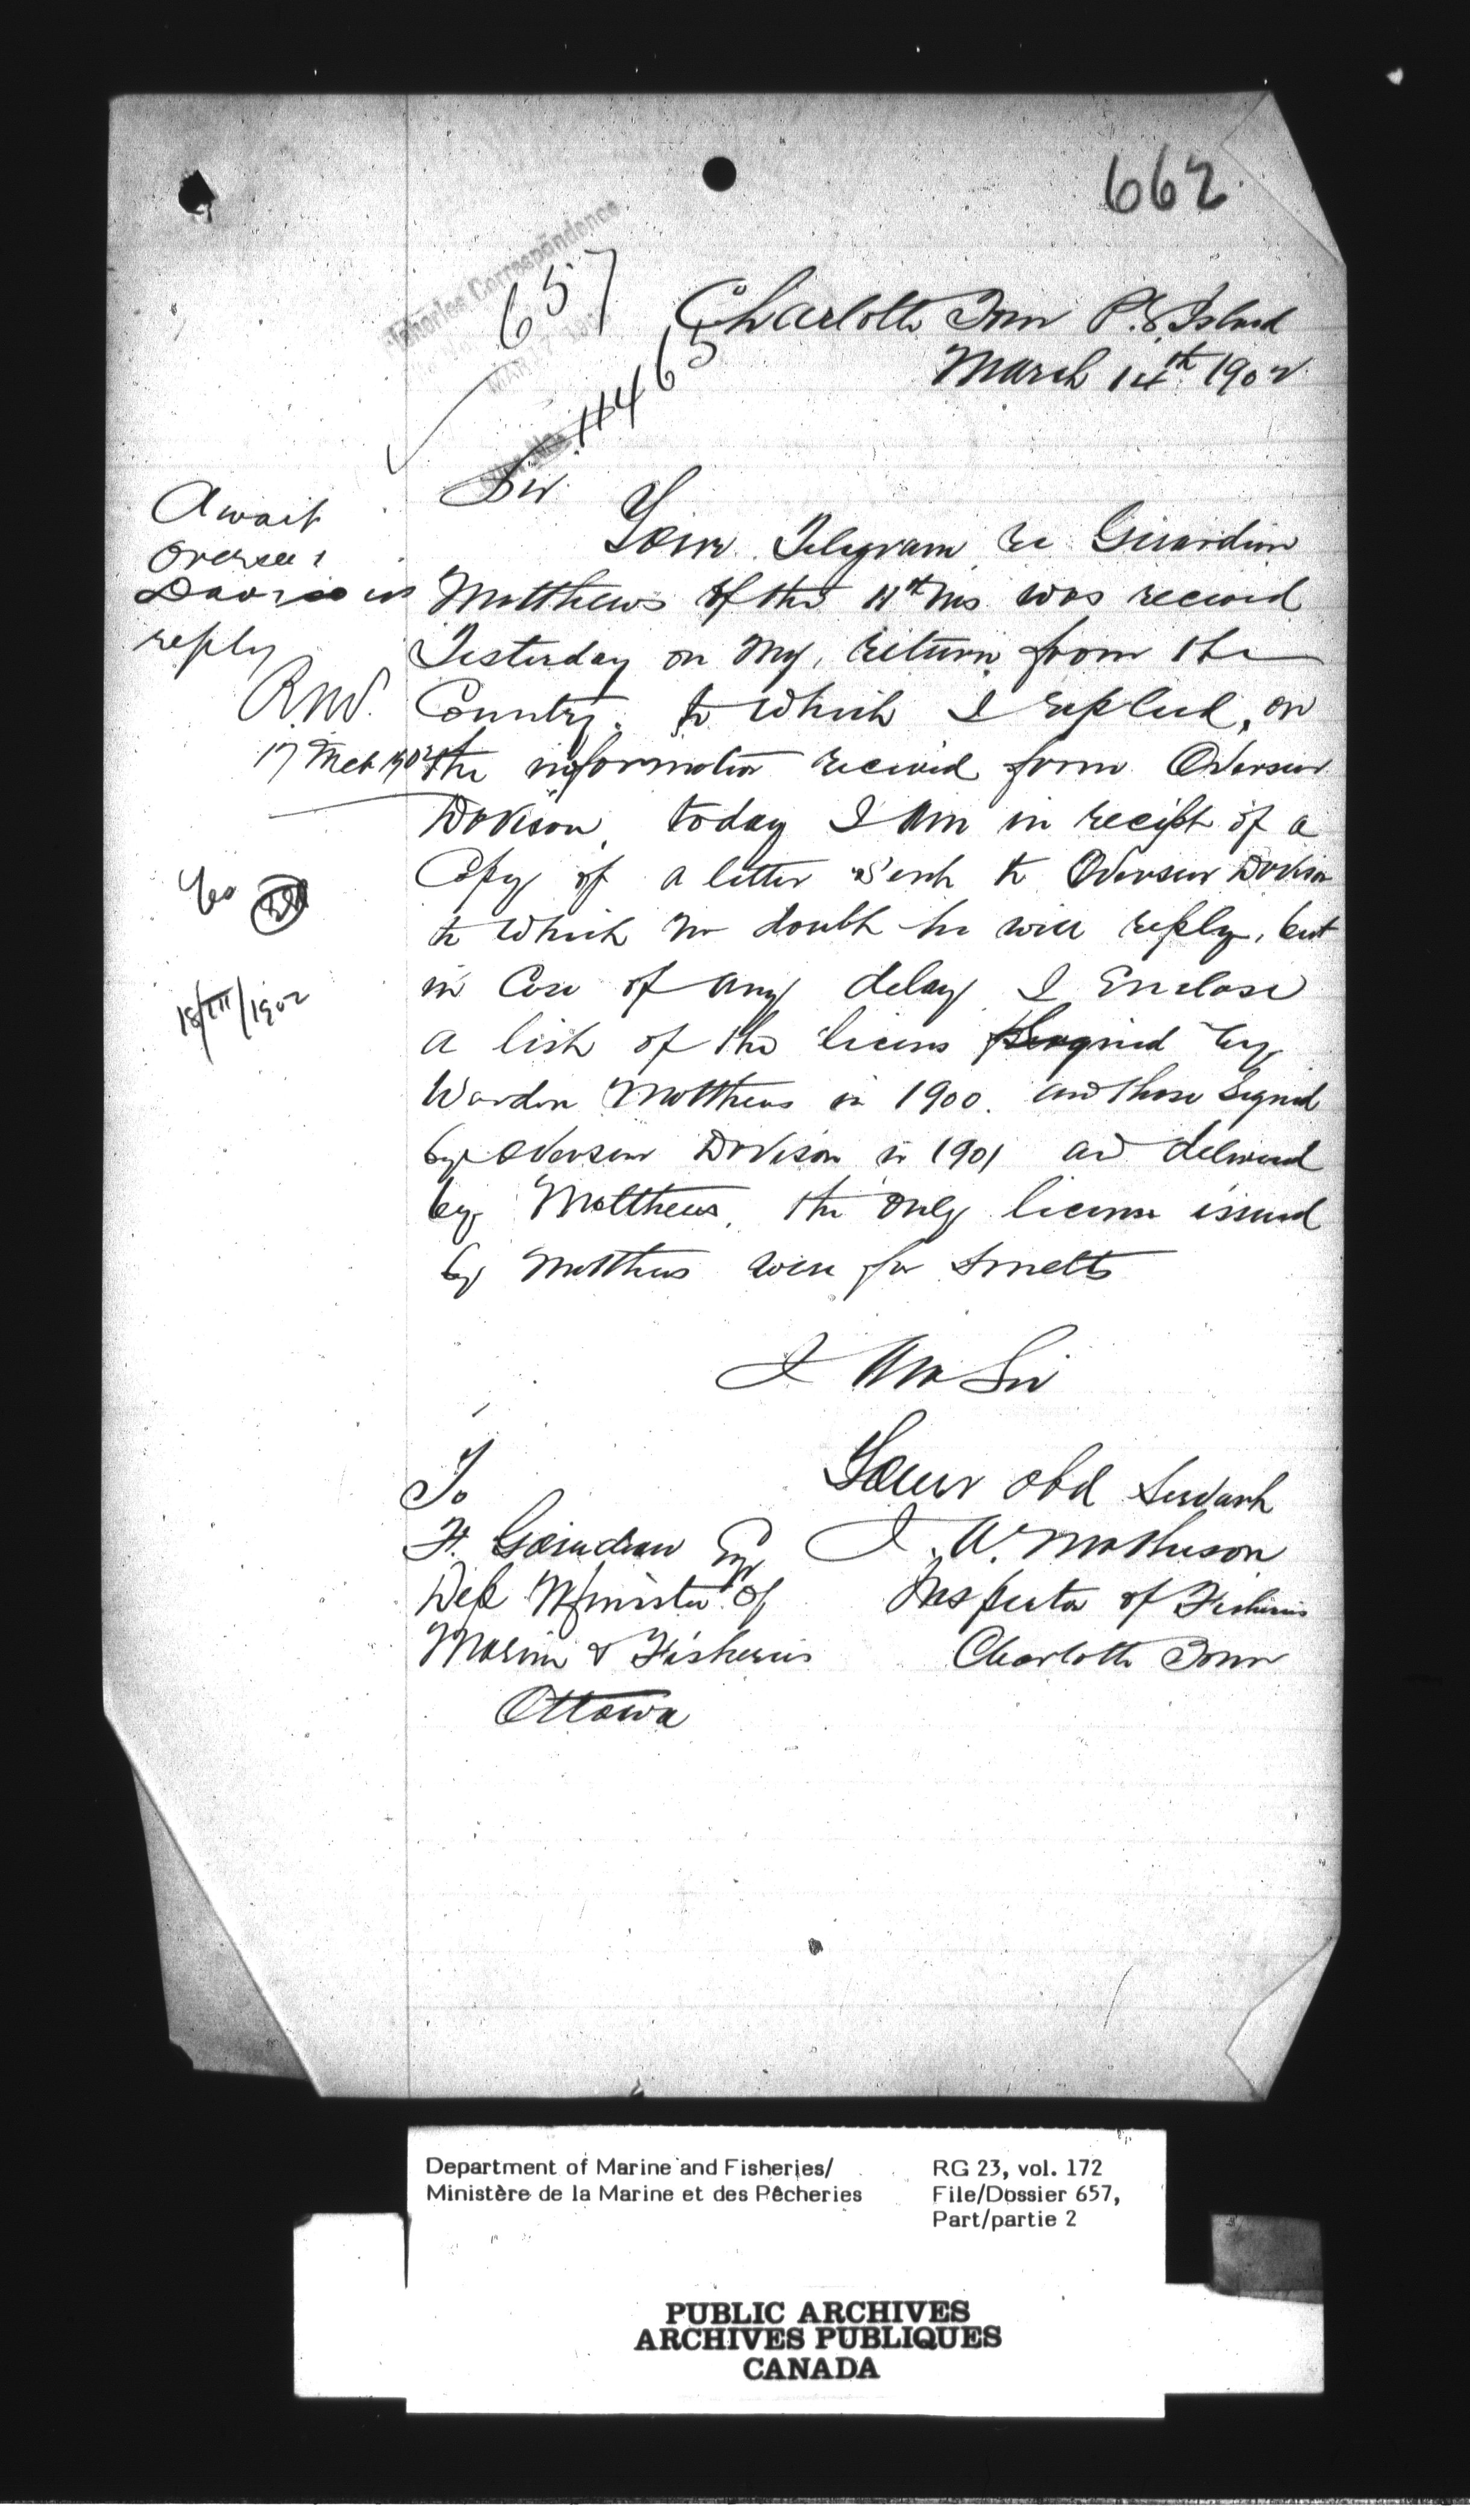 662
Fisheries Correspondence
657
MAR 17 190
No. 11465
Charlotte Town P. E Island
March 14th 1902
Sir
Your Telegram re Guardian
Matthews of the 11th Ins was received
Yesterday on my return from the
Country. to which I replied, on
the information received from Overseer
Davison, today I am in receipt of a
Copy of a letter Sent to Overseer Davison
to which no doubt he will reply, but
in Case of any delay I Enclose
a list of the licens signed by
Warden Matthews in 1900. and those Signed
by Overseer Davison in 1901 and delivered
by Matthews, the only license issued
by Matthews were for Smelts
I am Sir
Your obd Servant
J. W. Matheson
Inspector of Fisheries
Charlotte Town
To
F. Gourdeau Esqr
Dep Minister of
Marine & Fisheries
Ottawa
Await
Overseer
Davison's
reply
R.N.V.
17 Mch 1902
Yes
18/III/1902
Department of Marine and Fisheries/
Ministère de la Marine et des Pêcheries
RG 23, vol. 172
File/Dossier 657,
Part/partie 2
PUBLIC ARCHIVES
ARCHIVES PUBLIQUES
CANADA